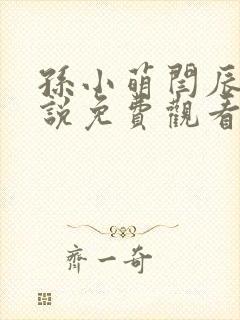 孫小萌閆辰
說免費觀看
齊一奇